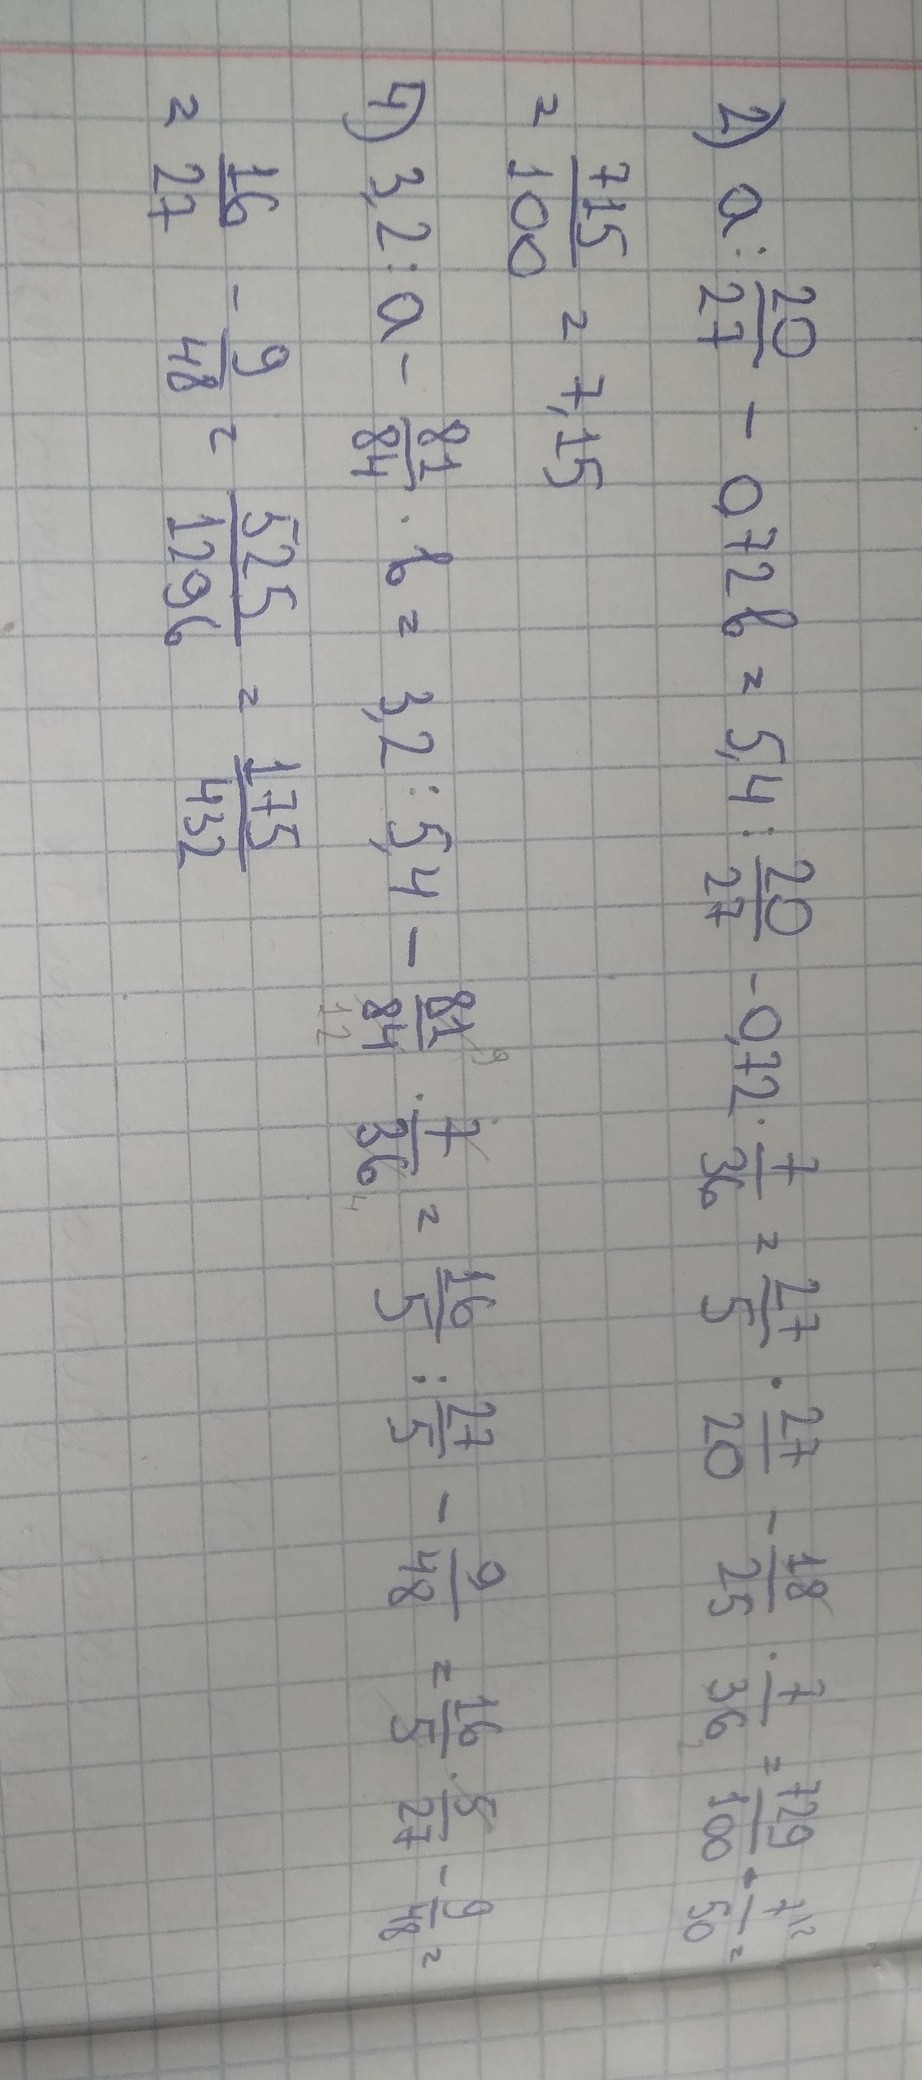 2) a : 20/27 - 0,72b = 5,4 : 20/27 - 0,72 · 7/36 = 27/5 · 27/20 - 18/25 · 7/36 = 729/100 - 7/50 =
= 715/100 = 7,15
4) 3,2 : a - 81/84 · b = 3,2 : 5,4 - 81/84 · 7/36 = 16/5 : 27/5 - 9/48 = 16/5 · 5/27 - 9/48 =
= 16/27 - 9/48 = 525/1296 = 175/432